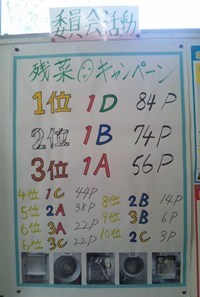 委員会活動
残菜キャンペーン
1位 1D 84P
2位 1B 74P
3位 1A 56P
4位 1C 44P
5位 2A 38P
6位 3A 22P
6位 3C 22P
8位 2B 14P
9位 3B 6P
10位 2C 3P